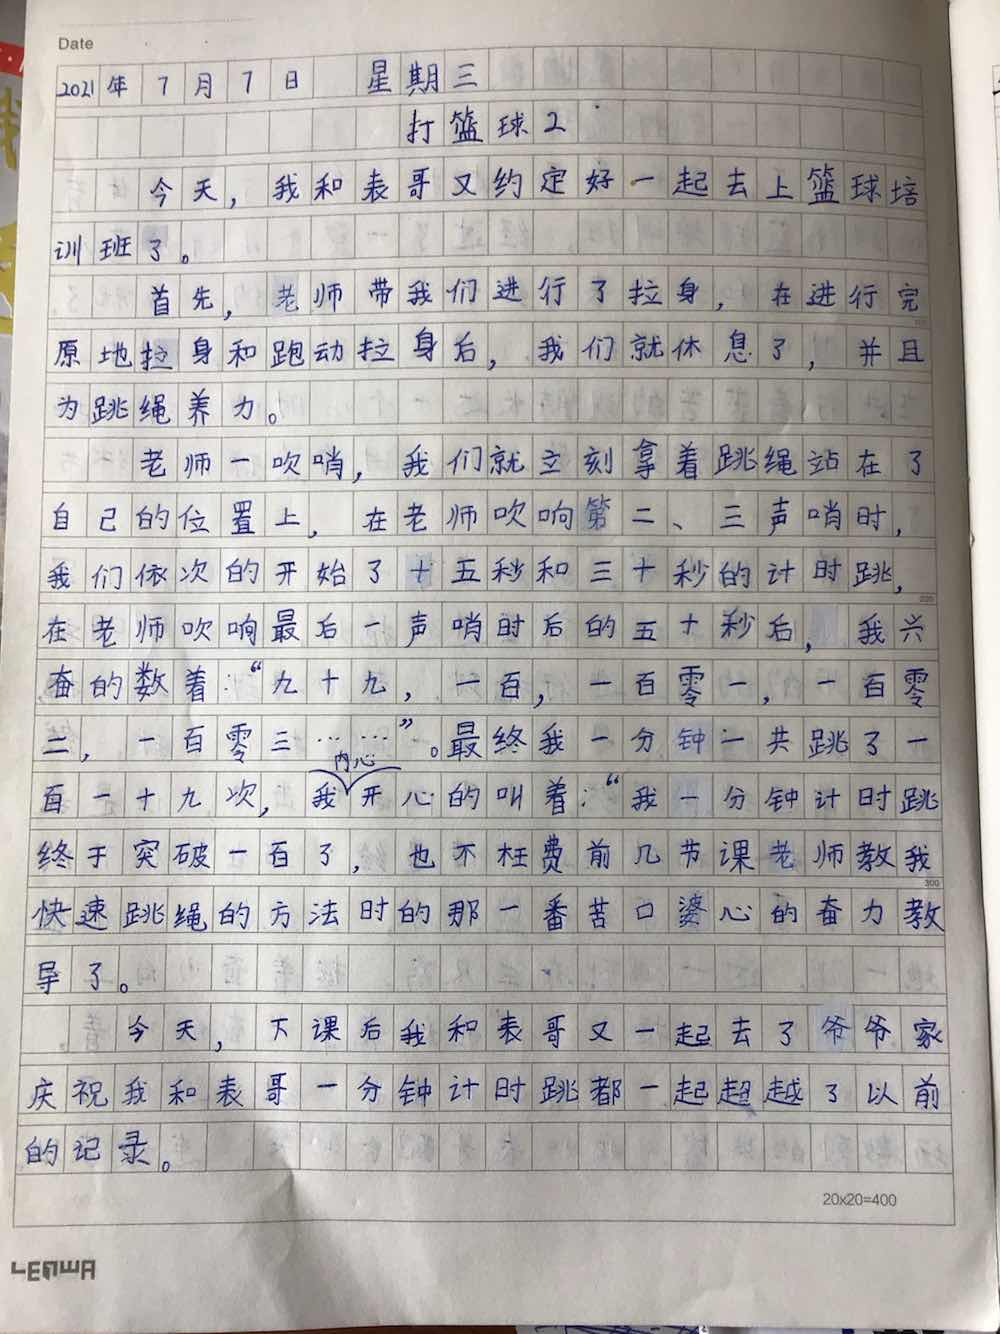 Date
2021年7月7日 星期三
打篮球2
今天，我和表哥又约定好一起去上篮球培
训班了。
首先，老师带我们进行了拉身，在进行完
原地拉身和跑动拉身后，我们就休息了，并且
为跳绳养力。
老师一吹哨，我们就立刻拿着跳绳站在了
自己的位置上，在老师吹响第二、三声哨时，
我们依次的开始了十五秒和三十秒的计时跳，
在老师吹响最后一声哨时后的五十秒后，我兴
奋的数着：“九十九，一百，一百零一，一百零
二，一百零三……”。最终我一分钟一共跳了一
百一十九次，我内心开心的叫着：“我一分钟计时跳
终于突破一百了，也不枉费前几节课老师教我
快速跳绳的方法时的那一番苦口婆心的奋力教
导了。
今天，下课后我和表哥又一起去了爷爷家
庆祝我和表哥一分钟计时跳都一起超越了以前
的记录。
20x20=400
LENWA